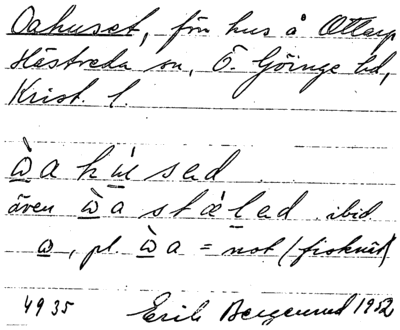 Oahuset, förr hus å Ottarp
Hästveda sn, Ö. Göinge hd,
Krist. l.
ὼa húsad
även ὼa stǽlad ibid.
ω, pl. ὼa = not (fisknät)
4935 Erik Bergenrud 1952